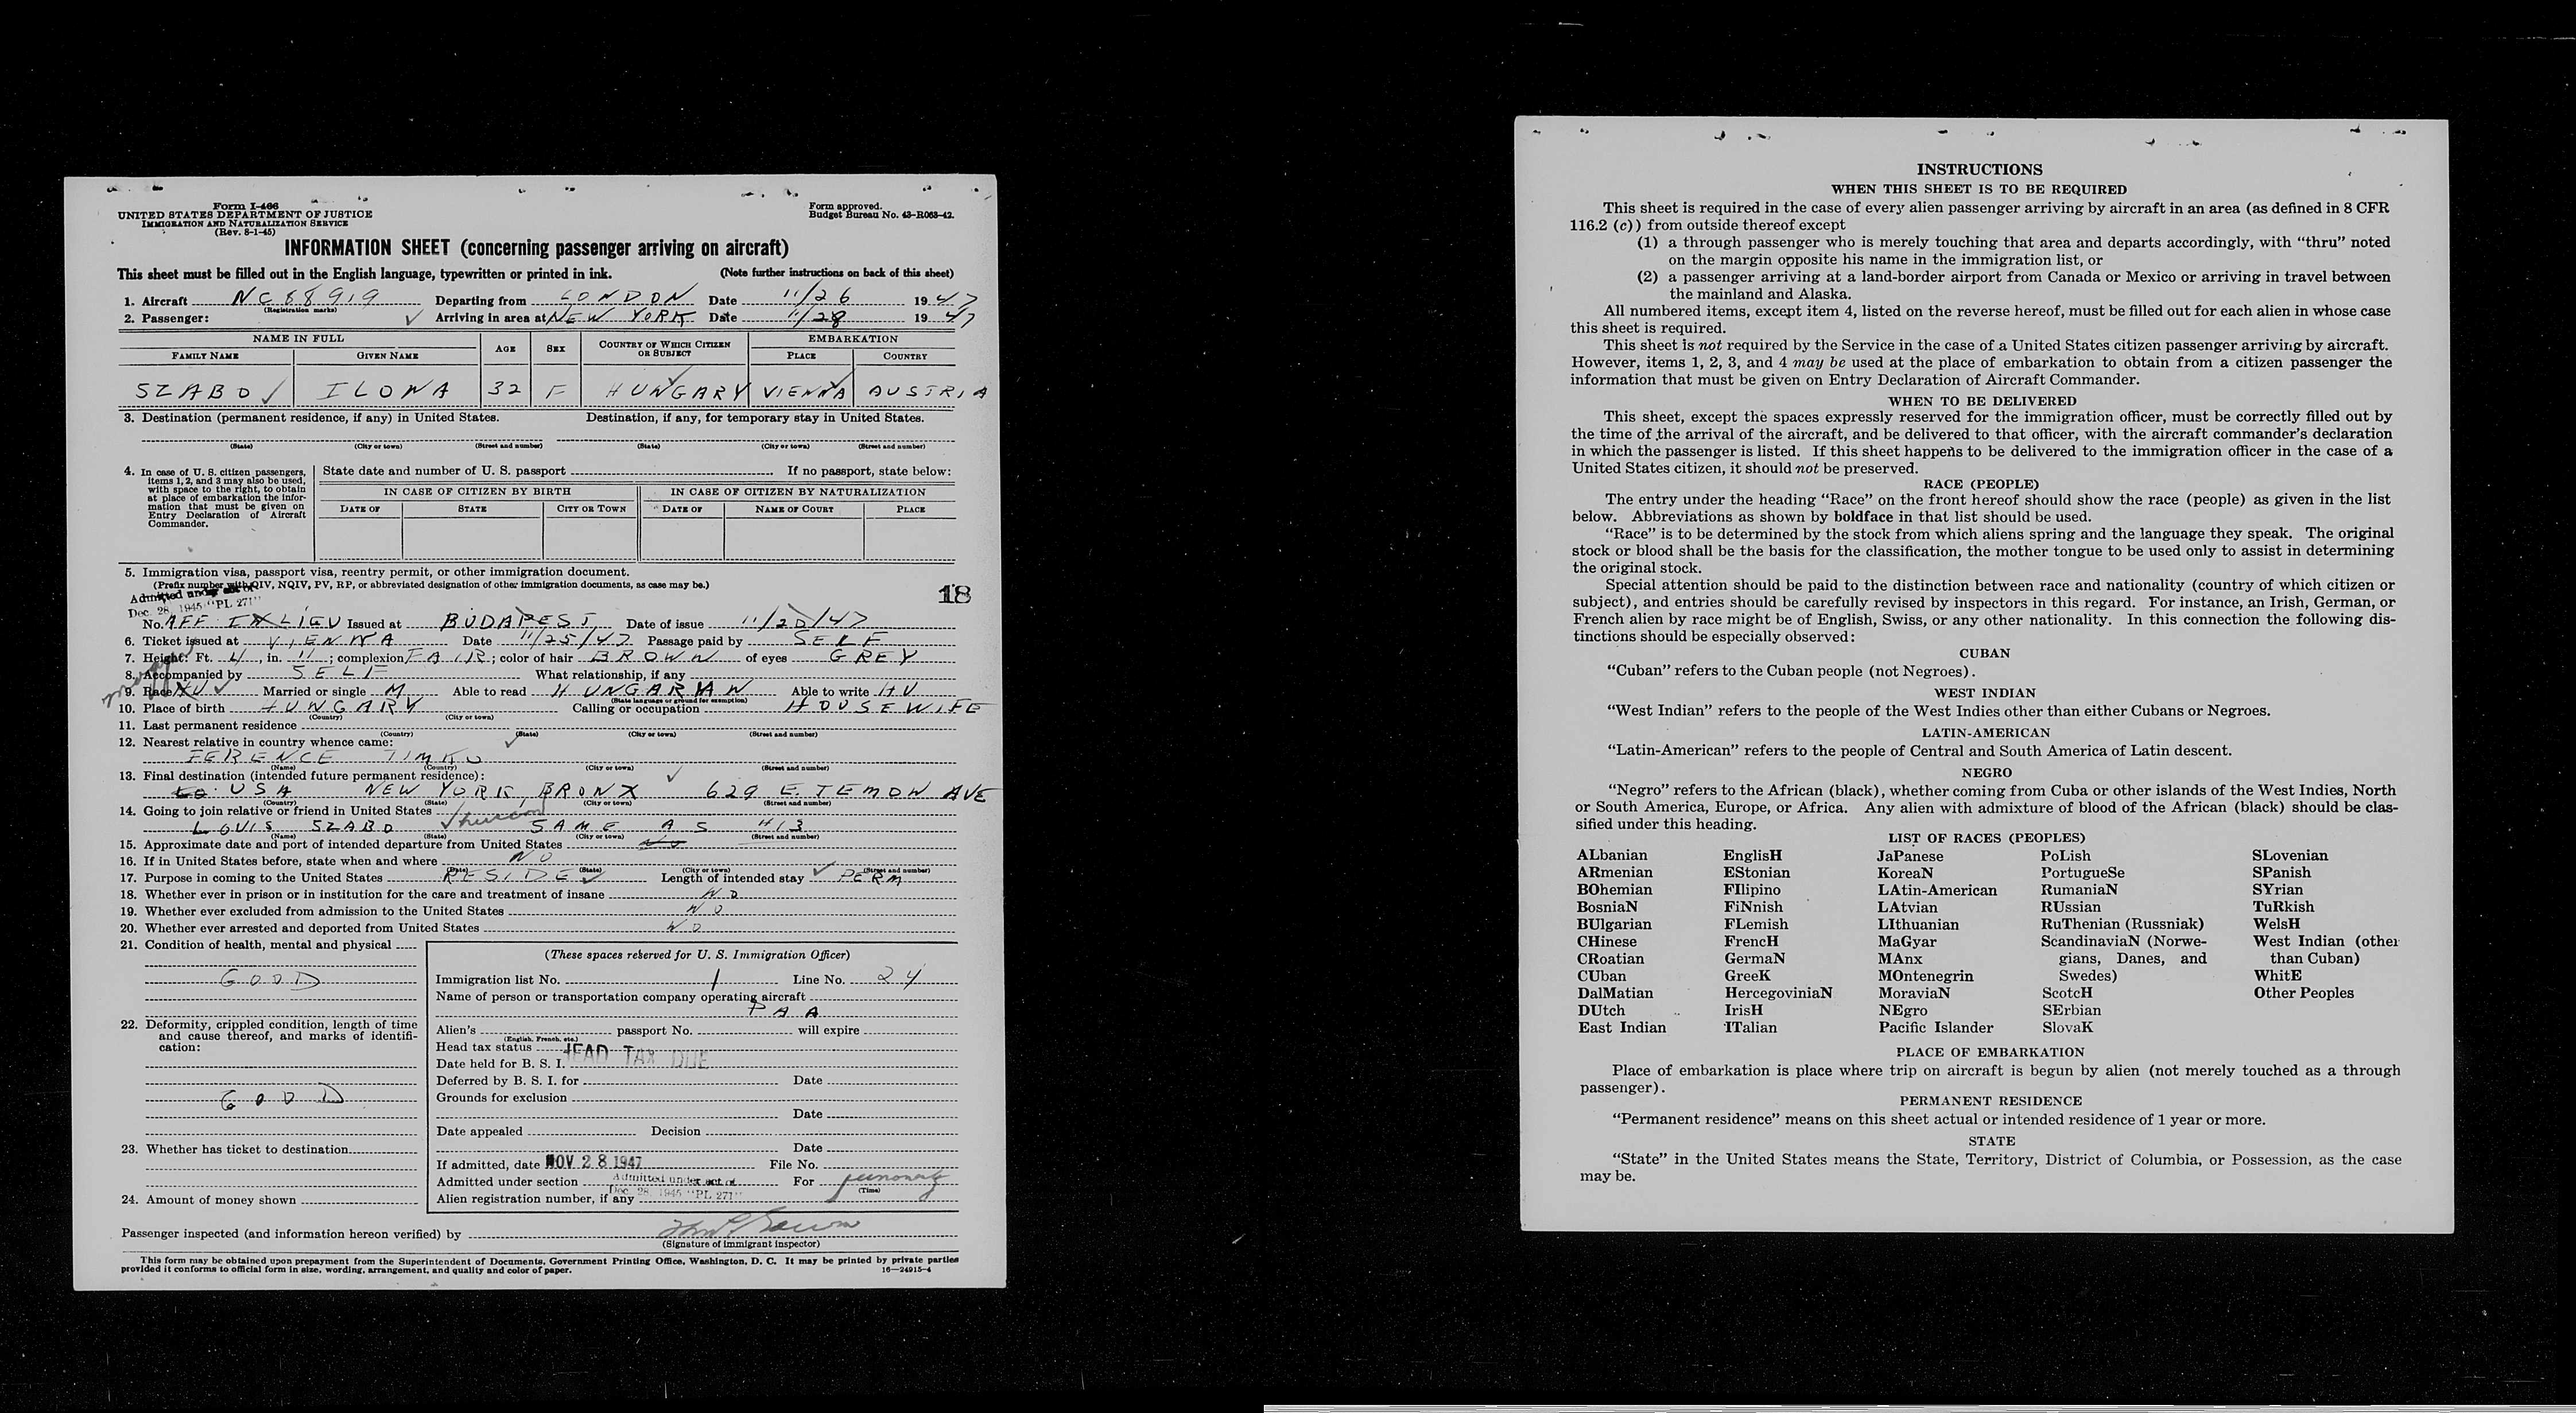 Form I-466
UNITED STATES DEPARTMENT OF JUSTICE
IMMIGRATION AND NATURALIZATION SERVICE
(Rev. 8-1-45)
Form approved.
Budget Bureau No. 43-R063-42.
INFORMATION SHEET (concerning passenger arriving on aircraft)
This sheet must be filled out in the English language, typewritten or printed in ink. (Note further instructions on back of this sheet)
1. Aircraft NC88919 Departing from LONDON Date 11/26 1947
(Registration marks)
2. Passenger: Arriving in area at NEW YORK Date 11/28 1947
NAME IN FULL AGE SEX COUNTRY OF WHICH CITIZEN OR SUBJECT EMBARKATION
FAMILY NAME GIVEN NAME PLACE COUNTRY
SZABO ILONA 32 F HUNGARY VIENNA AUSTRIA
3. Destination (permanent residence, if any) in United States. Destination, if any, for temporary stay in United States.
(State) (City or town) (Street and number) (State) (City or town) (Street and number)
4. In case of U. S. citizen passengers, items 1, 2, and 3 may also be used, with space to the right, to obtain at place of embarkation the information that must be given on Entry Declaration of Aircraft Commander.
State date and number of U. S. passport If no passport, state below:
IN CASE OF CITIZEN BY BIRTH IN CASE OF CITIZEN BY NATURALIZATION
DATE OF STATE CITY OR TOWN DATE OF NAME OF COURT PLACE
5. Immigration visa, passport visa, reentry permit, or other immigration document.
(Prefix number with QIV, NQIV, PV, RP, or abbreviated designation of other immigration documents, as case may be.)
18
Admitted under act of
Dec. 28, 1945 "PL 271"
No. AFF IX LIEU Issued at BUDAPEST Date of issue 11/20/47
6. Ticket issued at VIENNA Date 11/25/47 Passage paid by SELF
7. Height: Ft. 4, in. 11; complexion FAIR; color of hair BROWN of eyes GREY
8. Accompanied by SELF What relationship, if any
9. Race HU Married or single M Able to read HUNGARIAN Able to write HU
(State language or ground for exemption)
10. Place of birth HUNGARY Calling or occupation HOUSEWIFE
(Country) (City or town)
11. Last permanent residence
(Country) (State) (City or town) (Street and number)
12. Nearest relative in country whence came:
FERENCE TIMKO
(Name) (Country) (City or town) (Street and number)
13. Final destination (intended future permanent residence):
USA NEW YORK, BRONX 629 E. TEMON AVE
(Country) (State) (City or town) (Street and number)
14. Going to join relative or friend in United States
LOUIS SZABO husband SAME AS #13
(Name) (State) (City or town) (Street and number)
15. Approximate date and port of intended departure from United States
16. If in United States before, state when and where NO
(Date) (State) (City or town) (Street and number)
17. Purpose in coming to the United States RESIDE Length of intended stay PERM
18. Whether ever in prison or in institution for the care and treatment of insane NO
19. Whether ever excluded from admission to the United States NO
20. Whether ever arrested and deported from United States NO
21. Condition of health, mental and physical
GOOD
22. Deformity, crippled condition, length of time and cause thereof, and marks of identification:
GOOD
23. Whether has ticket to destination
24. Amount of money shown
(These spaces reserved for U. S. Immigration Officer)
Immigration list No. 1 Line No. 24
Name of person or transportation company operating aircraft
PAA
Alien's passport No. will expire
(English, French, etc.)
Head tax status HEAD TAX DUE
Date held for B. S. I.
Deferred by B. S. I. for Date
Grounds for exclusion
Date
Date appealed Decision
Date
If admitted, date NOV 28 1947 File No.
Admitted under section Admitted under act of For
Dec. 28, 1945 "PL 271" (Time)
Alien registration number, if any
Passenger inspected (and information hereon verified) by
(Signature of immigrant inspector)
This form may be obtained upon prepayment from the Superintendent of Documents, Government Printing Office, Washington, D. C. It may be printed by private parties
provided it conforms to official form in size, wording, arrangement, and quality and color of paper. 16—24915-4
INSTRUCTIONS
WHEN THIS SHEET IS TO BE REQUIRED
This sheet is required in the case of every alien passenger arriving by aircraft in an area (as defined in 8 CFR
116.2 (c)) from outside thereof except
(1) a through passenger who is merely touching that area and departs accordingly, with "thru" noted
on the margin opposite his name in the immigration list, or
(2) a passenger arriving at a land-border airport from Canada or Mexico or arriving in travel between
the mainland and Alaska.
All numbered items, except item 4, listed on the reverse hereof, must be filled out for each alien in whose case
this sheet is required.
This sheet is not required by the Service in the case of a United States citizen passenger arriving by aircraft.
However, items 1, 2, 3, and 4 may be used at the place of embarkation to obtain from a citizen passenger the
information that must be given on Entry Declaration of Aircraft Commander.
WHEN TO BE DELIVERED
This sheet, except the spaces expressly reserved for the immigration officer, must be correctly filled out by
the time of the arrival of the aircraft, and be delivered to that officer, with the aircraft commander's declaration
in which the passenger is listed. If this sheet happens to be delivered to the immigration officer in the case of a
United States citizen, it should not be preserved.
RACE (PEOPLE)
The entry under the heading "Race" on the front hereof should show the race (people) as given in the list
below. Abbreviations as shown by boldface in that list should be used.
"Race" is to be determined by the stock from which aliens spring and the language they speak. The original
stock or blood shall be the basis for the classification, the mother tongue to be used only to assist in determining
the original stock.
Special attention should be paid to the distinction between race and nationality (country of which citizen or
subject), and entries should be carefully revised by inspectors in this regard. For instance, an Irish, German, or
French alien by race might be of English, Swiss, or any other nationality. In this connection the following dis-
tinctions should be especially observed:
CUBAN
"Cuban" refers to the Cuban people (not Negroes).
WEST INDIAN
"West Indian" refers to the people of the West Indies other than either Cubans or Negroes.
LATIN-AMERICAN
"Latin-American" refers to the people of Central and South America of Latin descent.
NEGRO
"Negro" refers to the African (black), whether coming from Cuba or other islands of the West Indies, North
or South America, Europe, or Africa. Any alien with admixture of blood of the African (black) should be clas-
sified under this heading.
LIST OF RACES (PEOPLES)
ALbanian EnglisH JaPanese PoLish SLovenian
ARmenian EStonian KoreaN PortugueSe SPanish
BOhemian FIlipino LAtin-American RumaniaN SYrian
BosniaN FiNnish LAtvian RUssian TuRkish
BUlgarian FLemish LIthuanian RuThenian (Russniak) WelsH
CHinese FrencH MaGyar ScandinaviaN (Norwe- West Indian (other
CRoatian GermaN MAnx gians, Danes, and than Cuban)
CUban GreeK MOntenegrin Swedes) WhitE
DalMatian HercegoviniaN MoraviaN ScotcH Other Peoples
DUtch IrisH NEgro SErbian
East Indian ITalian Pacific Islander SlovaK
PLACE OF EMBARKATION
Place of embarkation is place where trip on aircraft is begun by alien (not merely touched as a through
passenger).
PERMANENT RESIDENCE
"Permanent residence" means on this sheet actual or intended residence of 1 year or more.
STATE
"State" in the United States means the State, Territory, District of Columbia, or Possession, as the case
may be.